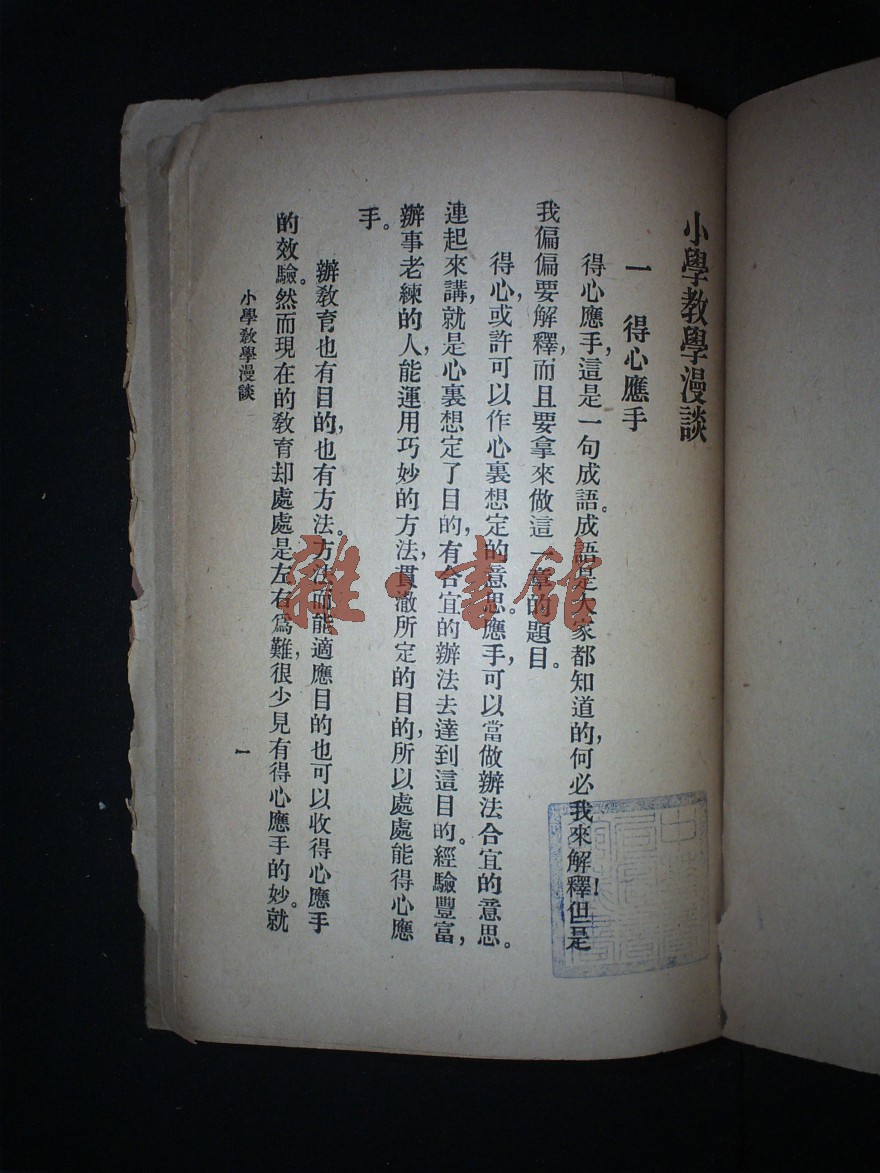 小學教學漫談
一　得心應手
得心應手，這是一句成語。成語是大家都知道的，何必我來解釋！但是
我偏偏要解釋，而且要拿來做這一章的題目。
得心，或許可以作心裏想定的意思。應手，可以當做辦法合宜的意思。
連起來講，就是心裏想定了目的，有合宜的辦法去達到這目的。經驗豐富，
辦事老練的人，能運用巧妙的方法，貫澈所定的目的，所以處處能得心應
手。
辦教育也有目的，也有方法。方法而能適應目的，也可以收得心應手
的效驗。然而現在的教育却處處是左右爲難，很少見有得心應手的妙。就
小學教學漫談
一
雜·書館